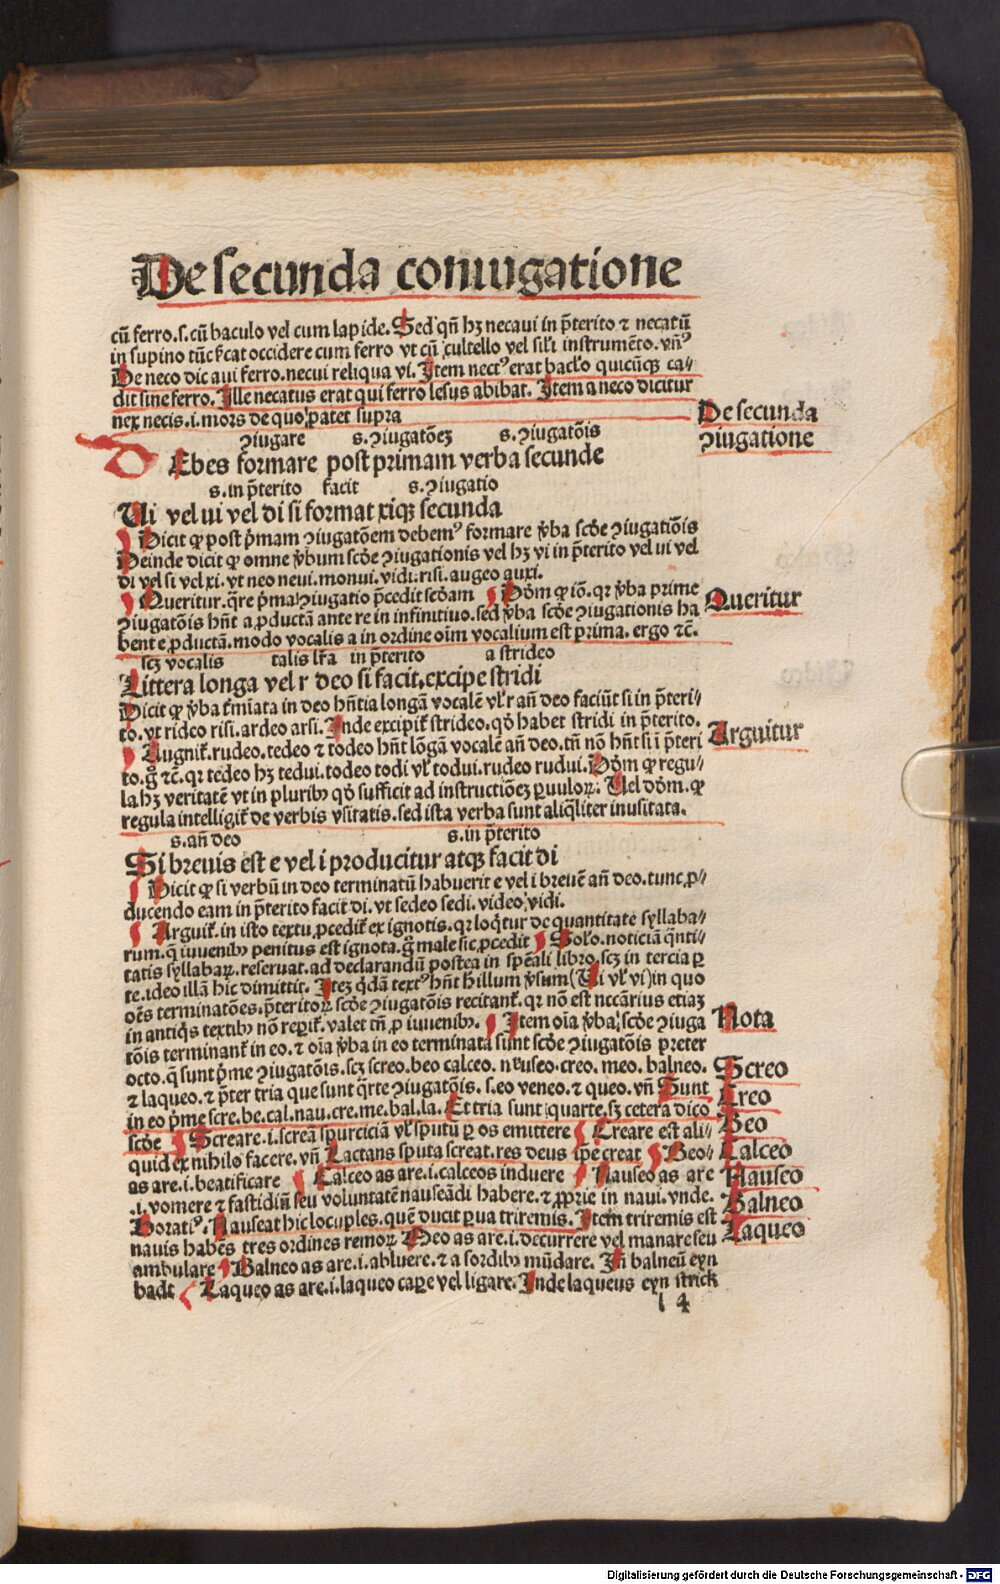 De secunda coniugatione
cū ferro.s.cū baculo vel cum lapide. Sed qñ hꝫ necaui in p̄terito ⁊ necatū
in supino tūc ſcat occidere cum ferro vt cū cultello vel sili instrumēto. vñꝰ
De neco dic aui ferro.necui reliqua vi. Item nectꝰ erat baclo quicūqꝫ ca⸗
dit sine ferro. Ille necatus erat qui ferro lesus abibat. Item a neco dicitur
nex necis.i.mors de quo patet supra
De secunda
ꝯiugatione
ꝯiugare s.ꝯiugatōeꝫ s.ꝯiugatōis
DEbes formare post primam verba secunde
s.in p̄terito facit s.ꝯiugatio
Ui vel ui vel di si format xiqꝫ secunda
Dicit ꝙ post p̄mam ꝯiugatōem debemꝰ formare v̄ba scd̄e ꝯiugatiōis
Deinde dicit ꝙ omne v̄bum scd̄e ꝯiugationis vel hꝫ vi in p̄terito vel ui vel
di vel si vel xi. vt neo neui. monui. vidi. risi. augeo auxi.
Queritur. q̄re p̄ma ꝯiugatio p̄cedit scd̄am Dd̄m ꝙ iō. qꝛ v̄ba prime
ꝯiugatōis hñt a ꝓductā ante re in infinitiuo. sed v̄ba scd̄e ꝯiugationis ha
bent e ꝓductā. modo vocalis a in ordine oīm vocalium est prima. ergo ⁊c̄.
Queritur
scꝫ vocalis talis lr̄a in p̄terito a strideo
Littera longa vel r deo si facit, excipe stridi
Dicit ꝙ v̄ba t̄miata in deo hñtia longā vocalē vl̓ r añ deo faciūt si in p̄teri⸗
to. vt rideo risi. ardeo arsi. Inde excipit̄ strideo. qd̓ habet stridi in p̄terito.
Augnit̄. rudeo. tedeo ⁊ todeo hñt lōgā vocalē añ deo. tñ nō hñt si ī p̄teri
to. g̊ ⁊c̄. qꝛ tedeo hꝫ tedui. todeo todi vl̓ todui. rudeo rudui. Dd̄m ꝙ regu⸗
la hꝫ veritatē vt in pluribꝫ qd̓ sufficit ad instructiōeꝫ ꝑuuloꝝ. Uel dd̄m. ꝙ
regula intelligit̄ de verbis vsitatis. sed ista verba sunt aliq̄liter inusitata.
Arguitur
s.añ deo s.in p̄terito
Si breuis est e vel i producitur atqꝫ facit di
Dicit ꝙ si verbū in deo terminatū habuerit e vel i breuē añ deo. tunc ꝓ⸗
ducendo eam in p̄terito facit di. vt sedeo sedi. video vidi.
Arguit̄. in isto textu ꝓcedit̄ ex ignotis. qꝛ loq̄tur de quantitate syllaba⸗
rum. q̄ iuuenibꝫ penitus est ignota. g̊ male sic ꝓcedit Solo. noticiā q̄nti⸗
tatis syllabaꝝ. reseruat. ad declarandū postea in sp̄eali libro. scꝫ in tercia ꝑ
te. ideo illā hic dimittit. Iteꝫ q̄dā textꝰ hñt h̓ illum v̓sum (Ui vl̓ vi) in quo
oēs terminatōes. p̄teritoꝝ scd̄e ꝯiugatōis recitant̄. qꝛ nō est nccāriuꝫ etiaꝫ
in antiq̄s textibꝫ nō reꝑit̄. valet tñ ꝓ iuuenibꝫ. Item oīa v̄ba scd̄e ꝯiuga
tōis terminant̄ in eo. ⁊ oīa v̄ba in eo terminata sunt scd̄e ꝯiugatōis preter
octo. q̄ sunt p̄me ꝯiugatōis. scꝫ screo. beo calceo. nauseo. creo. meo. balneo.
⁊ laqueo. ⁊ p̄ter tria que sunt q̄rte ꝯiugatōis. s. eo veneo. ⁊ queo. vñ Sunt
in eo p̄me scre. be. cal. nau. cre. me. bal. la. Et tria sunt quarte. sꝫ cetera dico
scd̄e Screare. i. screā spurciciā vl̓ sputū ꝑ os emittere Creare est ali⸗
quid ex nihilo facere. vñ Lactans sputa screat. res deus ipe creat Beo
as are. i. beatificare Calceo as are. i. calceos induere Nauseo as are
.i. vomere ⁊ fastidiū seu voluntatē nauseādi habere. ⁊ ꝓprie in naui. vnde.
Horatiꝰ. Nauseat hic locuples. quē ducit ꝑua triremis. Item triremis est
nauis habēs tres ordines remoꝝ Meo as are. i. decurrere vel manare seu
ambulare Balneo as are. i. abluere. ⁊ a sordibꝫ mūdare. In balneū eyn
badt Laqueo as are. i. laqueo caꝑe vel ligare. Inde laqueus eyn strick
Nota
Screo
Creo
Beo
Calceo
Nauseo
Balneo
Laqueo
l 4
Digitalisierung gefördert durch die Deutsche Forschungsgemeinschaft - DFG